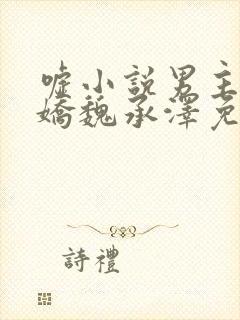 嘘小說男主
嬌魏承澤免
詩禮